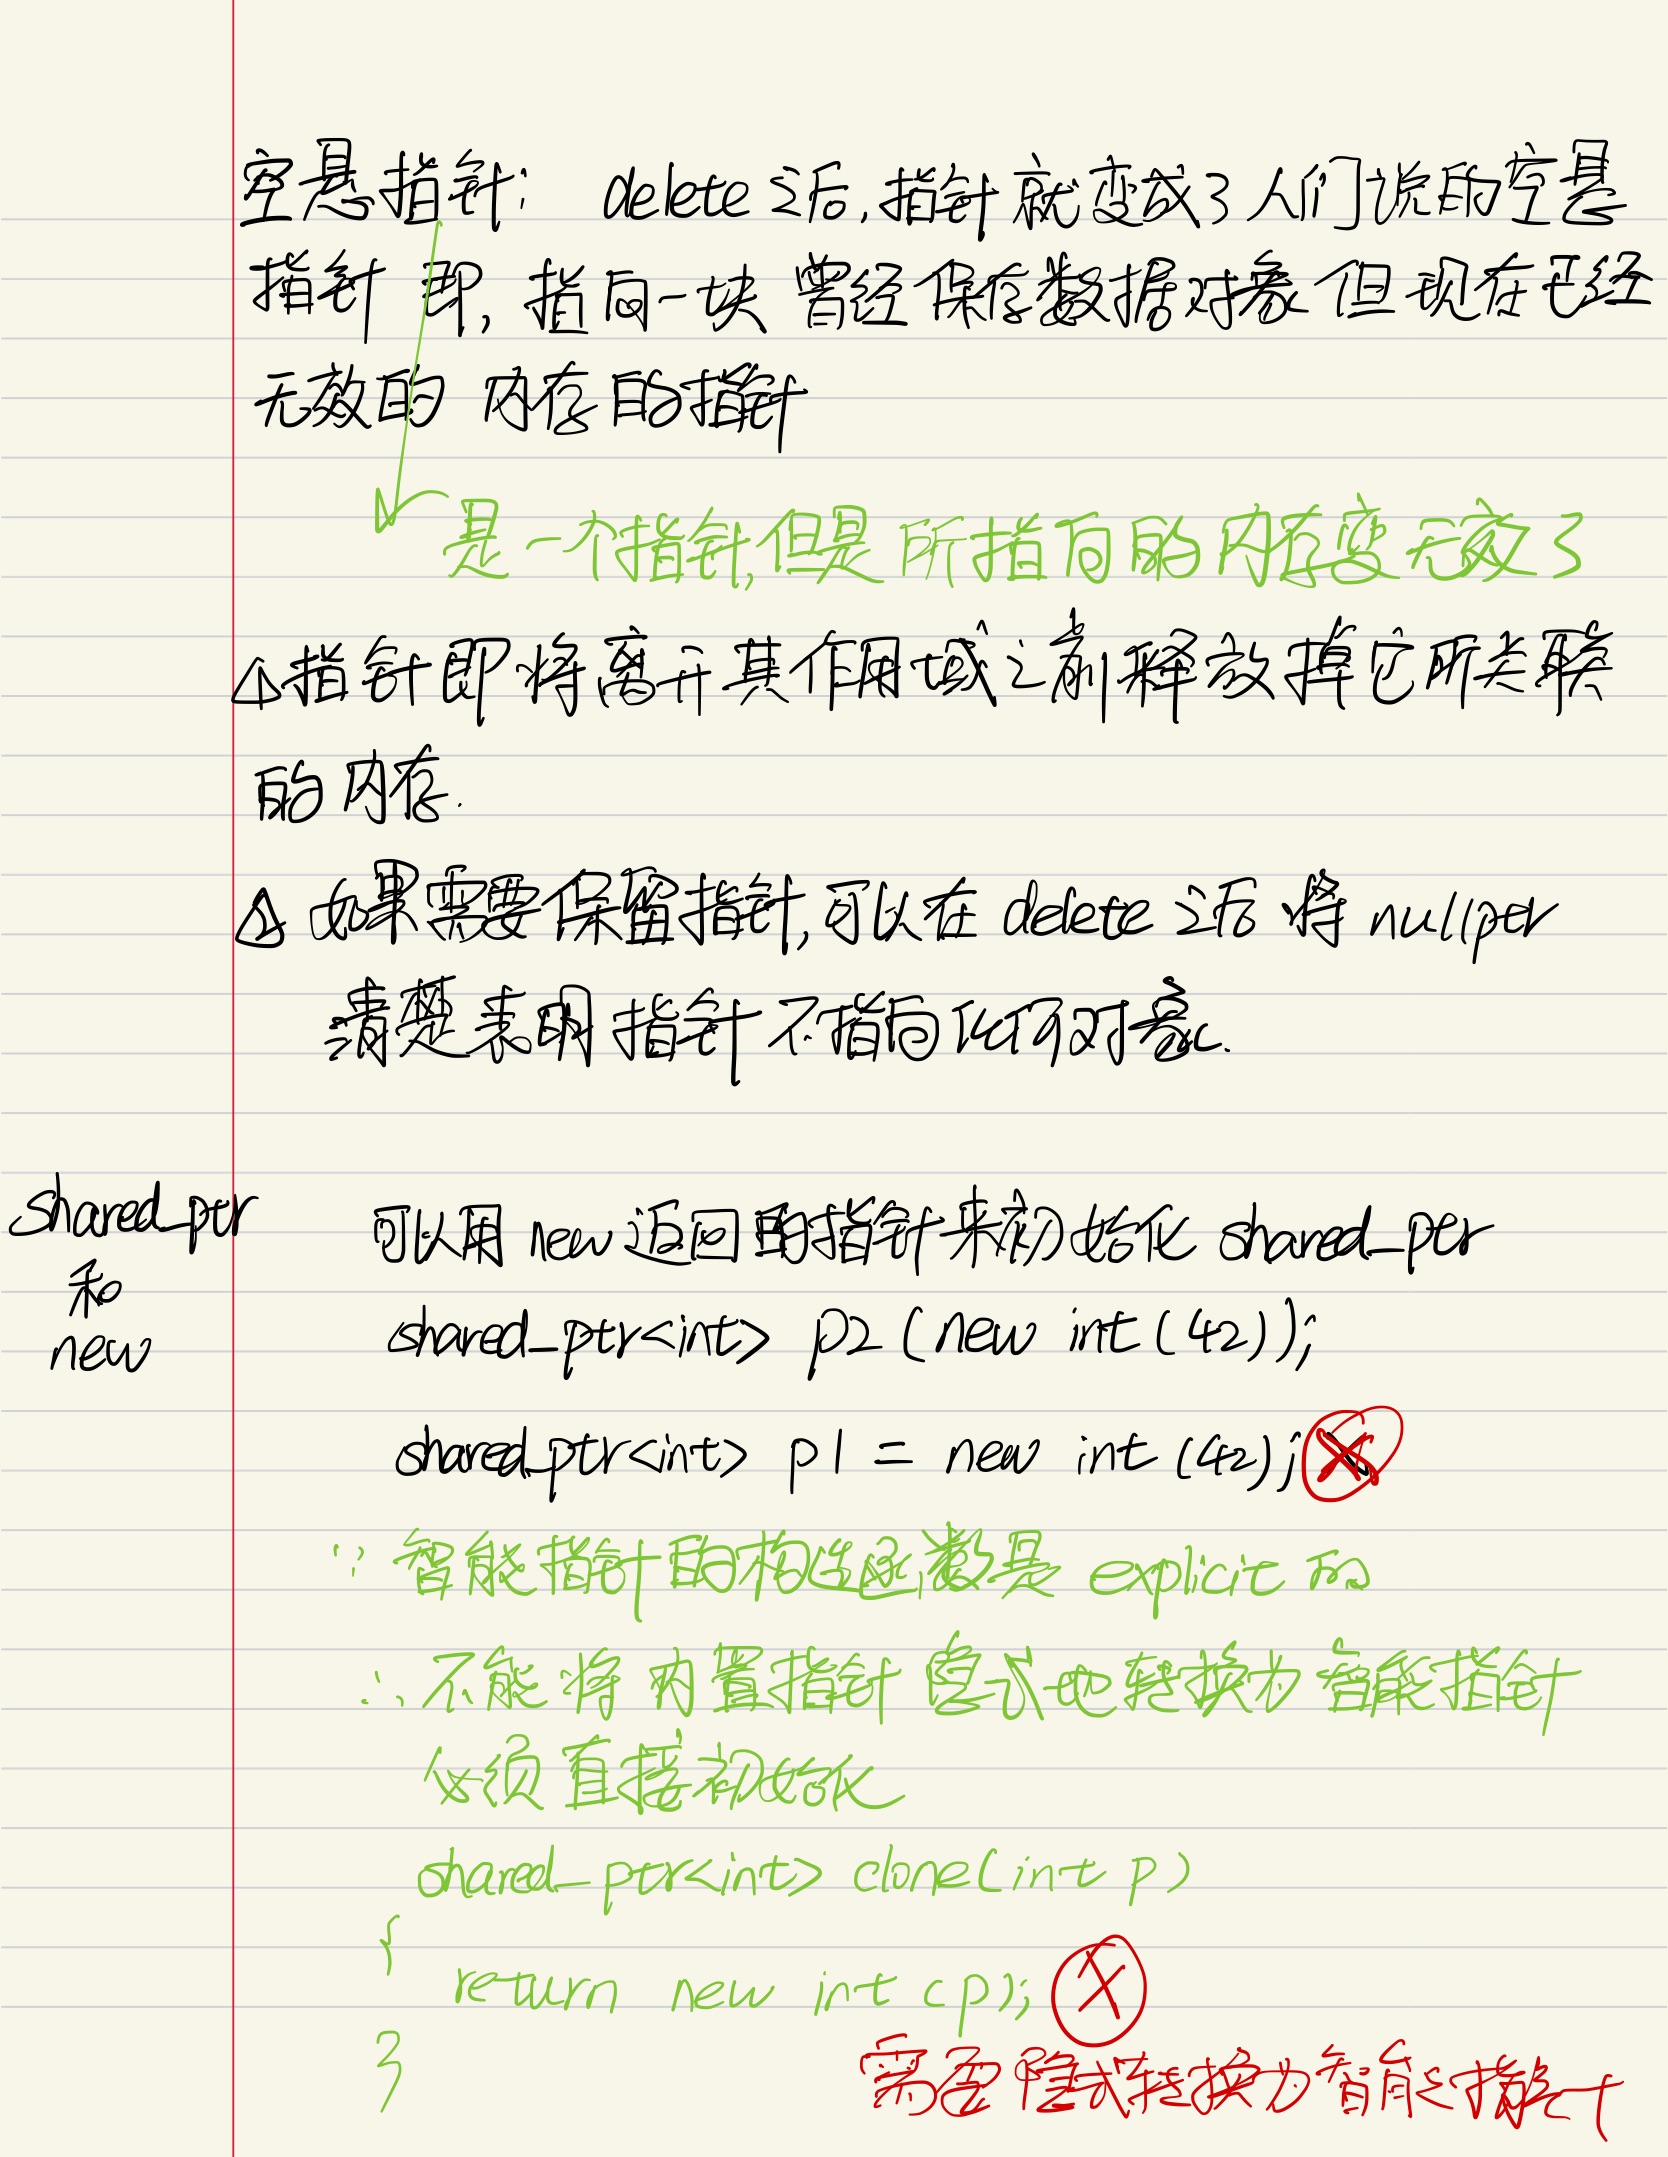 空悬指针: delete之后,指针就变成了人们说的空悬
指针 即,指向一块曾经保存数据对象但现在已经
无效的 内存的指针
是一个指针,但是所指向的内存变无效了
△指针即将离开其作用域之前释放掉它所关联
的内存.
△如果需要保留指针,可以在delete之后将nullptr
清楚表明指针不指向任何对象.
shared_ptr
和
new
可以用new返回的指针来初始化shared_ptr
shared_ptr<int> p2 (new int (42));
shared_ptr<int> p1 = new int (42); X
∵ 智能指针的构造函数是explicit的
∴ 不能将内置指针隐式地转换为智能指针
必须直接初始化
shared_ptr<int> clone(int p)
{
return new int (p); X
}
需要隐式转换为智能指针